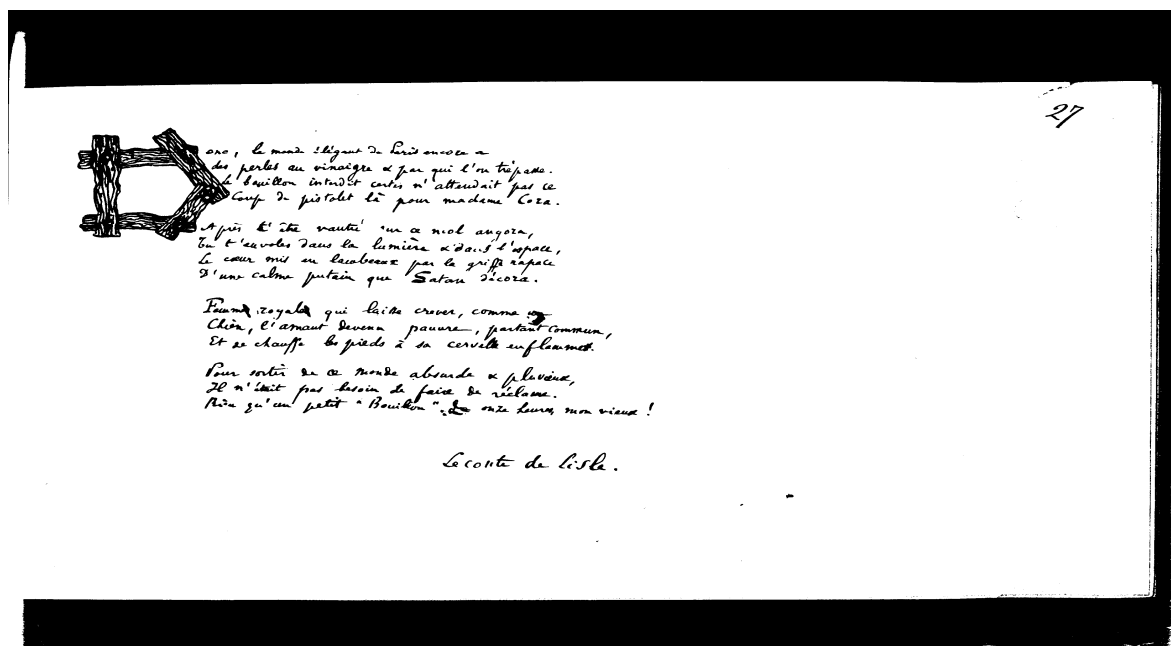 27
Donc, le monde élégant de Paris encore a
des perles au vinaigre & par qui l'on trépasse.
Le bouillon interdit certes n'attendait pas ce
Coup de pistolet là pour madame Cora.
Après t'être vautré sur ce mol angora,
Tu t'envoles dans la lumière & dans l'espace,
Le cœur mis en lambeaux par la griffe rapace
D'une calme putain que Satan décora.
Femme royale qui laisse crever, comme un
Chien, l'amant devenu pauvre, partant commun,
Et se chauffe les pieds à sa cervelle enflammée.
Pour sortir de ce monde absurde & pluvieux,
Il n'était pas besoin de faire de réclame.
Rien qu'un petit "Bouillon" de onze heures, mon vieux !
Leconte de Lisle.